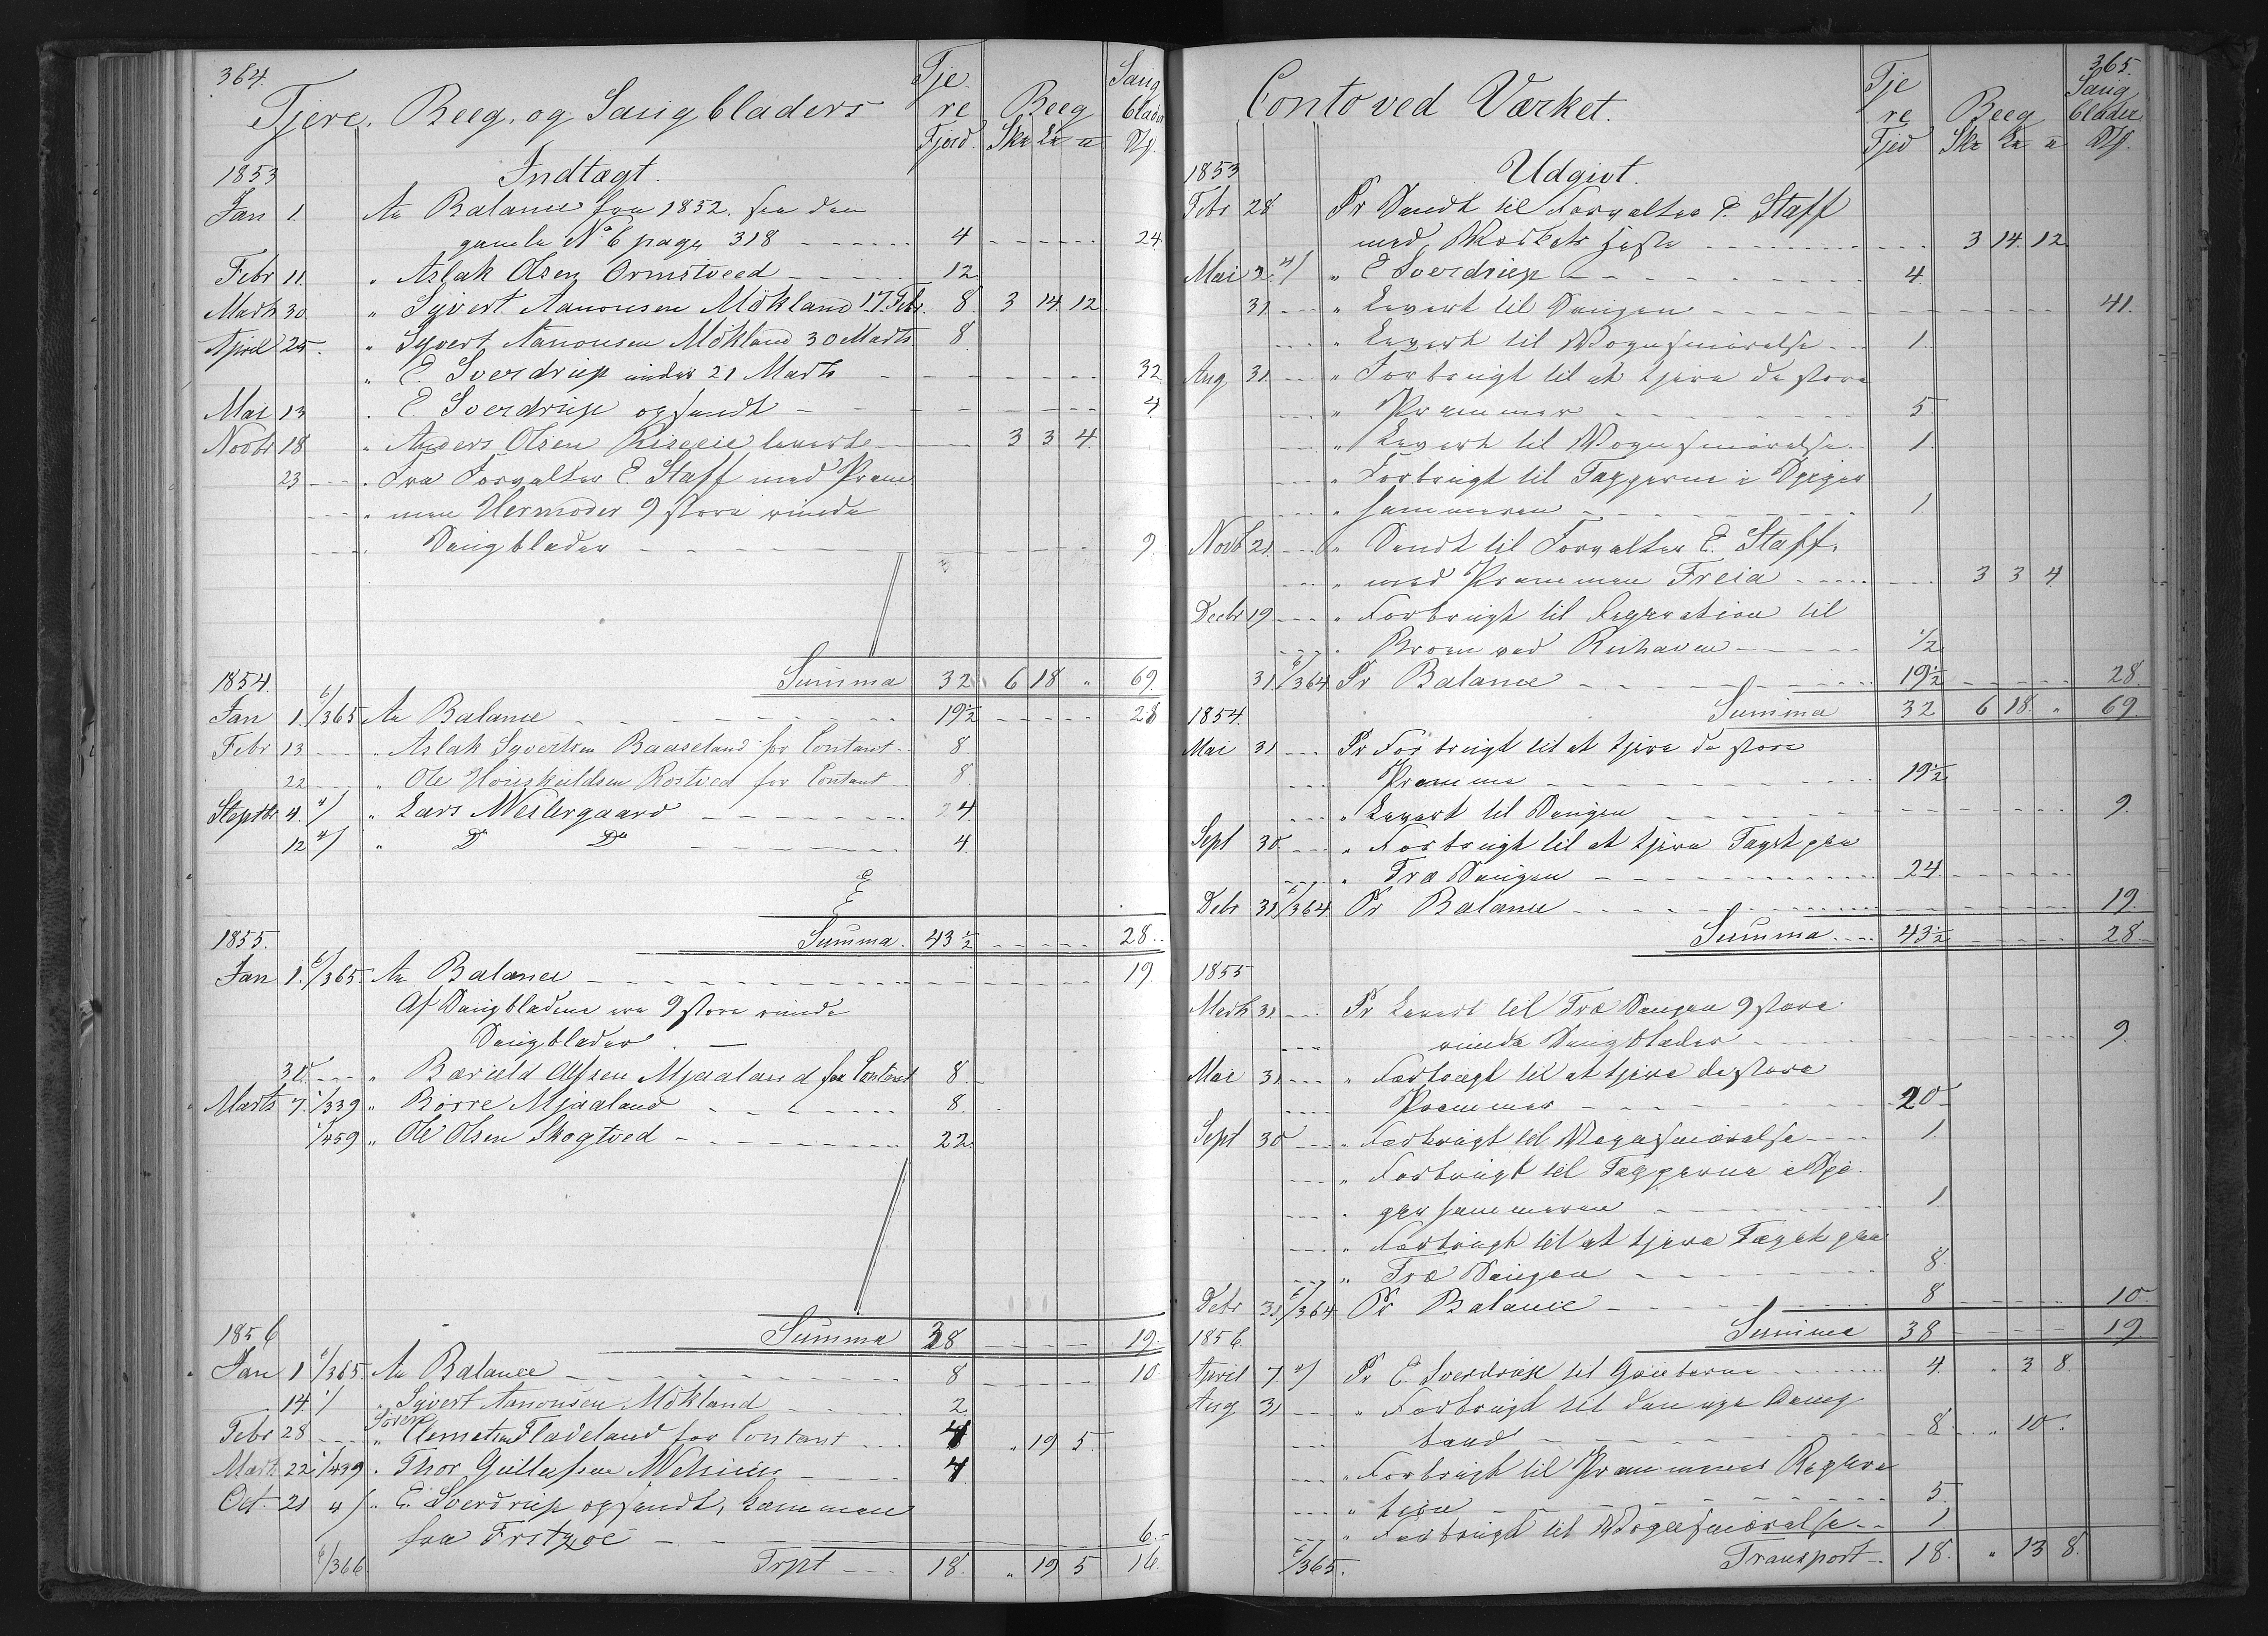 364.
Tjere, Beeg, og Saugbladers
Tje
re
Fjerd.
Beeg
Sk℔ L℔ ℔
Saug
blade
Stk.
1853 Indtægt.
Jan 1. An Balance fra 1852. see den
gamle No 6 page 318 4 24
Febr 11. " Aslak Olsen Ormstveed 12
Marts 30 " Syvert Aanonsen Mökland 17 Febr. 8 3 14 12
April 25. " Syvert Aanonsen Mökland 30 Marts 8
" E. Sverdrup under 21 Marts 32
Mai 13 " E Sverdrup opsendt 4
Novbr 18 " Anders Olsen Riseeie levert 3 3 4
23 " Fra Forvalter E Staff med Pram
" men Hermoder 9 store runde
Saugblader 9
Summa 32 6 18 " 69
1854.
Jan 1. 6/365 An Balance 19½ 28
Febr 13 " Aslak Syvertsen Baaseland for Contant 8
22 " Ole Höiskuldsen Rostved for Contant 8
Septbr 4. 4/ " Lars Westergaard 4
12 4/ " Do Do 4
Summa 43½ 28
1855.
Jan 1. 6/365. An Balance 19.
Af Saugbladene ere 9 store runde
Saugblader
30 " Baruld Alfsen Mjaaland for Contant 8
Marts 7. 1/339 " Börre Mjaaland 8.
1/459 " Ole Olsen Skogtved 22
Summa 38 19.
1856
Jan 1 6/365. An Balance 8 10
14 1/ " Syvert Aanonsen Mökland 2
Febr 28 " Sören Clemetsen Fladeland for Contant 4 " 19 5
Marts 22 1/439 " Thor Gullafsen 4
Oct 21 4/ " E. Sverdrup opsendt, kommen
fra Fritzöe 6
6/366 Trpt 18. " 19 5 16.
365.
Conto ved Værket.
Tje
re
Fjed
Beeg
Sk℔ L℔ ℔
Saug
blader
Stk.
1853 Udgivt.
Febr 28 Pr Sendt til Forvalter E. Staff
med Værkets Jagt 3 14 12
Mai 2. 4/ " E Sverdrup 4
31 " Levert til Saugen 41.
" Levert til Vognsmörelse 1.
Aug 31 " Forbrugt til at tjere de store
" Prammer 5
" Levert til Vognsmörelse 1.
" Forbrugt til Tapperne i Spiger
" hammeren 1
Novb 21. " Sendt til Forvalter E. Staff.
" med Prammen Freia 3 3 4
Decbr 19 " Forbrugt til Reparation til
" Broen ved 1/2
31 6/364 Pr Balance 19½ 28.
Summa 32 6 18 " 69.
1854.
Mai 31 Pr Forbrugt til at tjere de store
Pramme 19½
" Levert til Saugen 9.
Sept 30 " Forbrugt til at tjere Taget paa
" Træ Saugen 24
Debr 31 6/364 Pr Balance 19.
Summa 43½ 28
1855
Marts 31 Pr Levert til Træ Saugen 9 store
runde Saugblader 9.
Mai 31 " Forbrugt til at tjere de store
Prammer 20
Sept 30 " Forbrugt til Vognsmörelse 1.
" Forbrugt til Tapperne i Spi
" gerhammeren 1
" Forbrugt til at tjere Taget paa
" Træ Saugen 8.
Debr 31. 6/364 Pr Balance 8 10
Summa 38 19
1856.
April 7. 4/ Pr E. Sverdrup til Gruberne 4. " 3 8
Aug 31 " Forbrugt til den nye
8 " 10 "
" Forbrugt til Prammenes Repera
" tion 5.
" Forbrugt til Vognsmörelse 1
6/365. Transport 18. " 13 8.